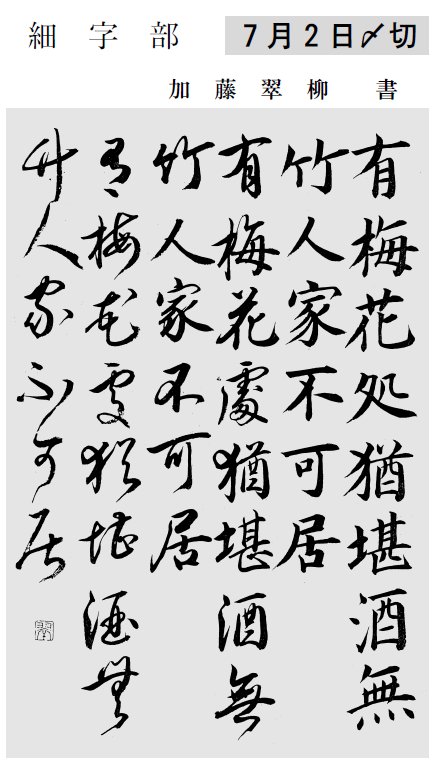 細字部
7月2日〆切
加藤翠柳 書
有梅花処猶堪酒無
竹人家不可居
有梅花處猶堪酒無
竹人家不可居
有梅花處猶堪酒無
竹人家不可居